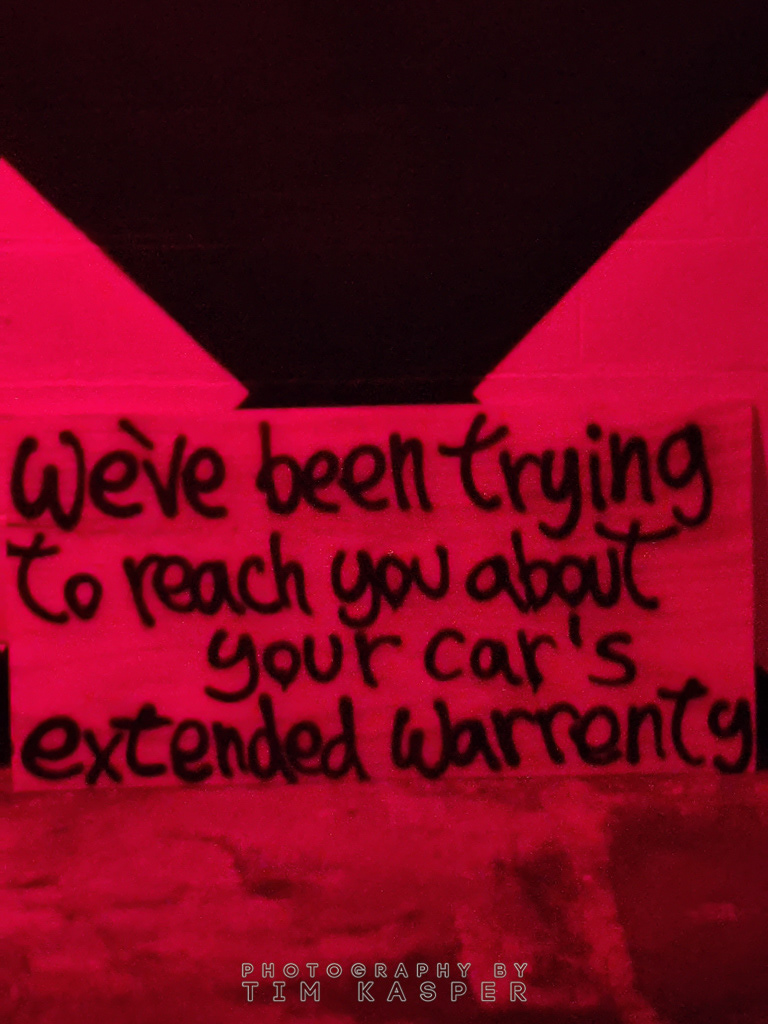 We've been trying
to reach you about
your car's
extended warrenty
PHOTOGRAPHY BY
TIM KASPER